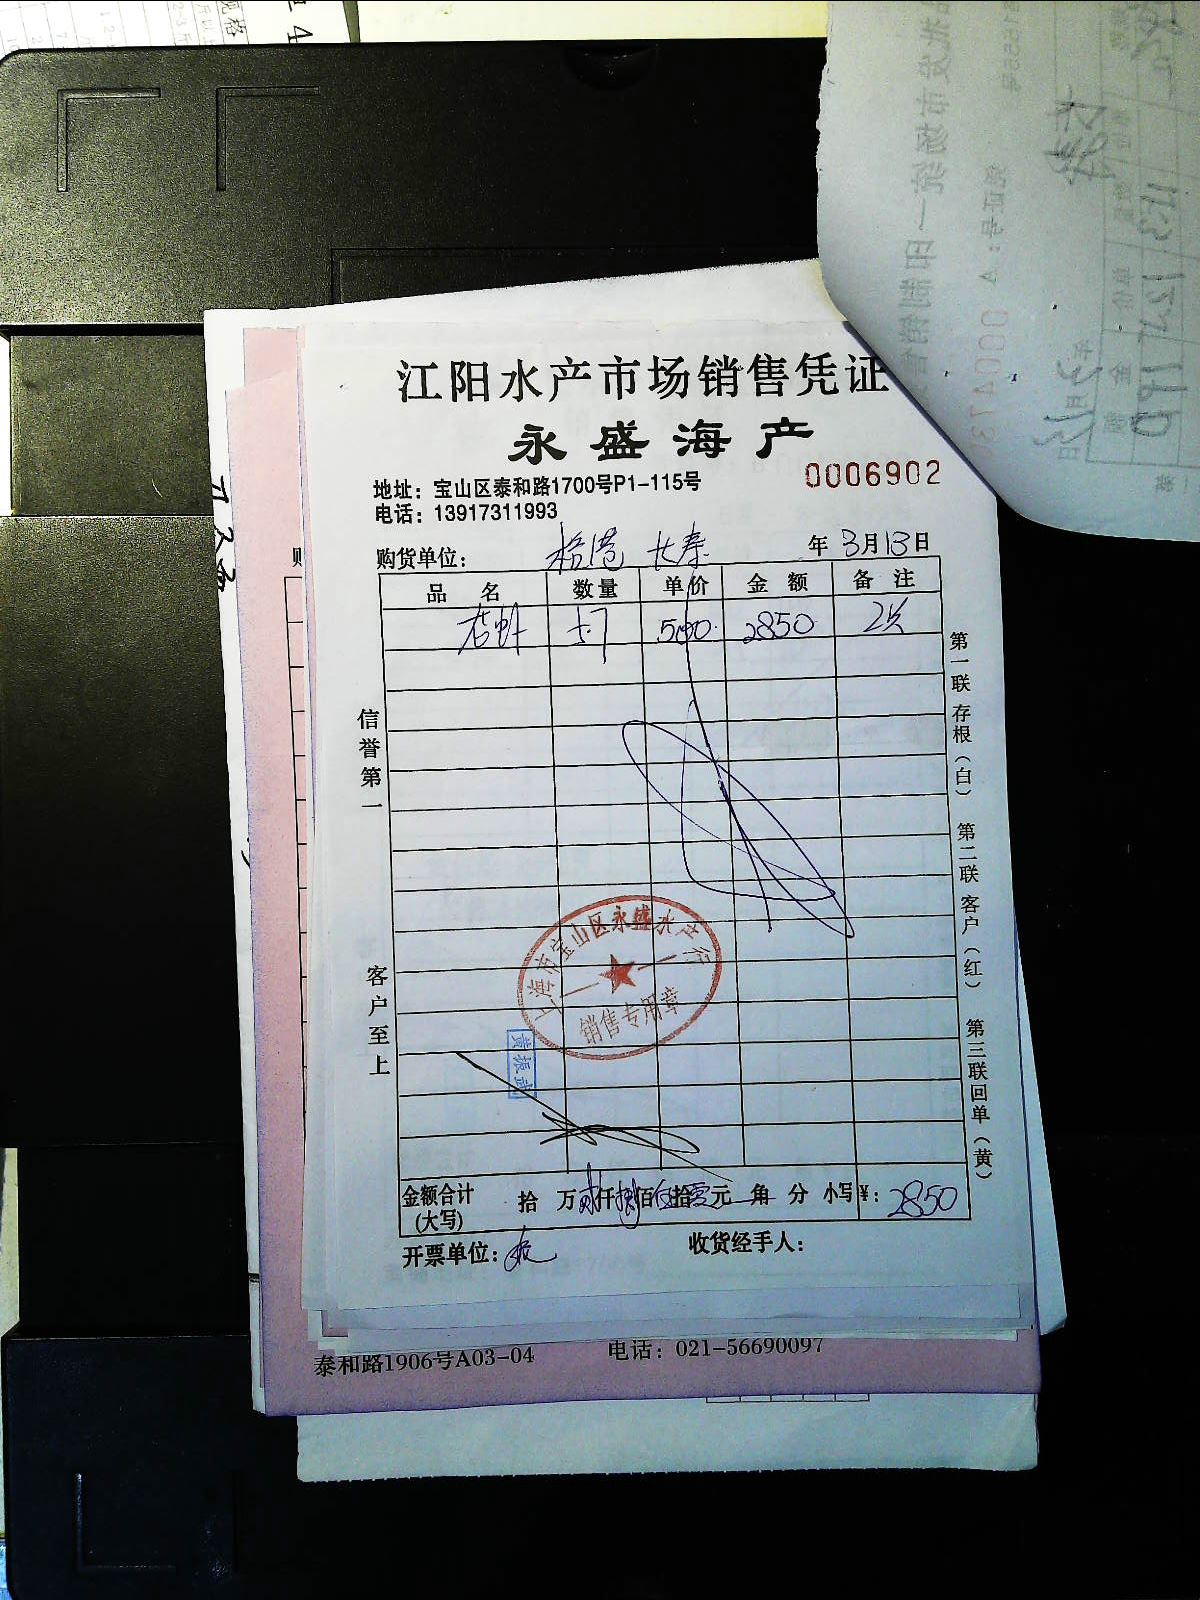 规格
4
江阳水产市场销售凭证
永盛海产
地址：宝山区泰和路1700号P1-115号
0006902
电话：13917311993
购货单位： 长寿 年 3月13日
品 名 数量 单价 金 额 备 注
5.7 500 2850 2只
信誉第一
客户至上
第一联 存根（白） 第二联 客户（红） 第三联回单（黄）
上海市宝山区永盛水产行
销售专用章
金额合计（大写） 拾 万 贰仟捌佰伍拾零元 角 分 小写¥：2850
开票单位： 收货经手人：
泰和路1906号A03-04 电话：021-56690097